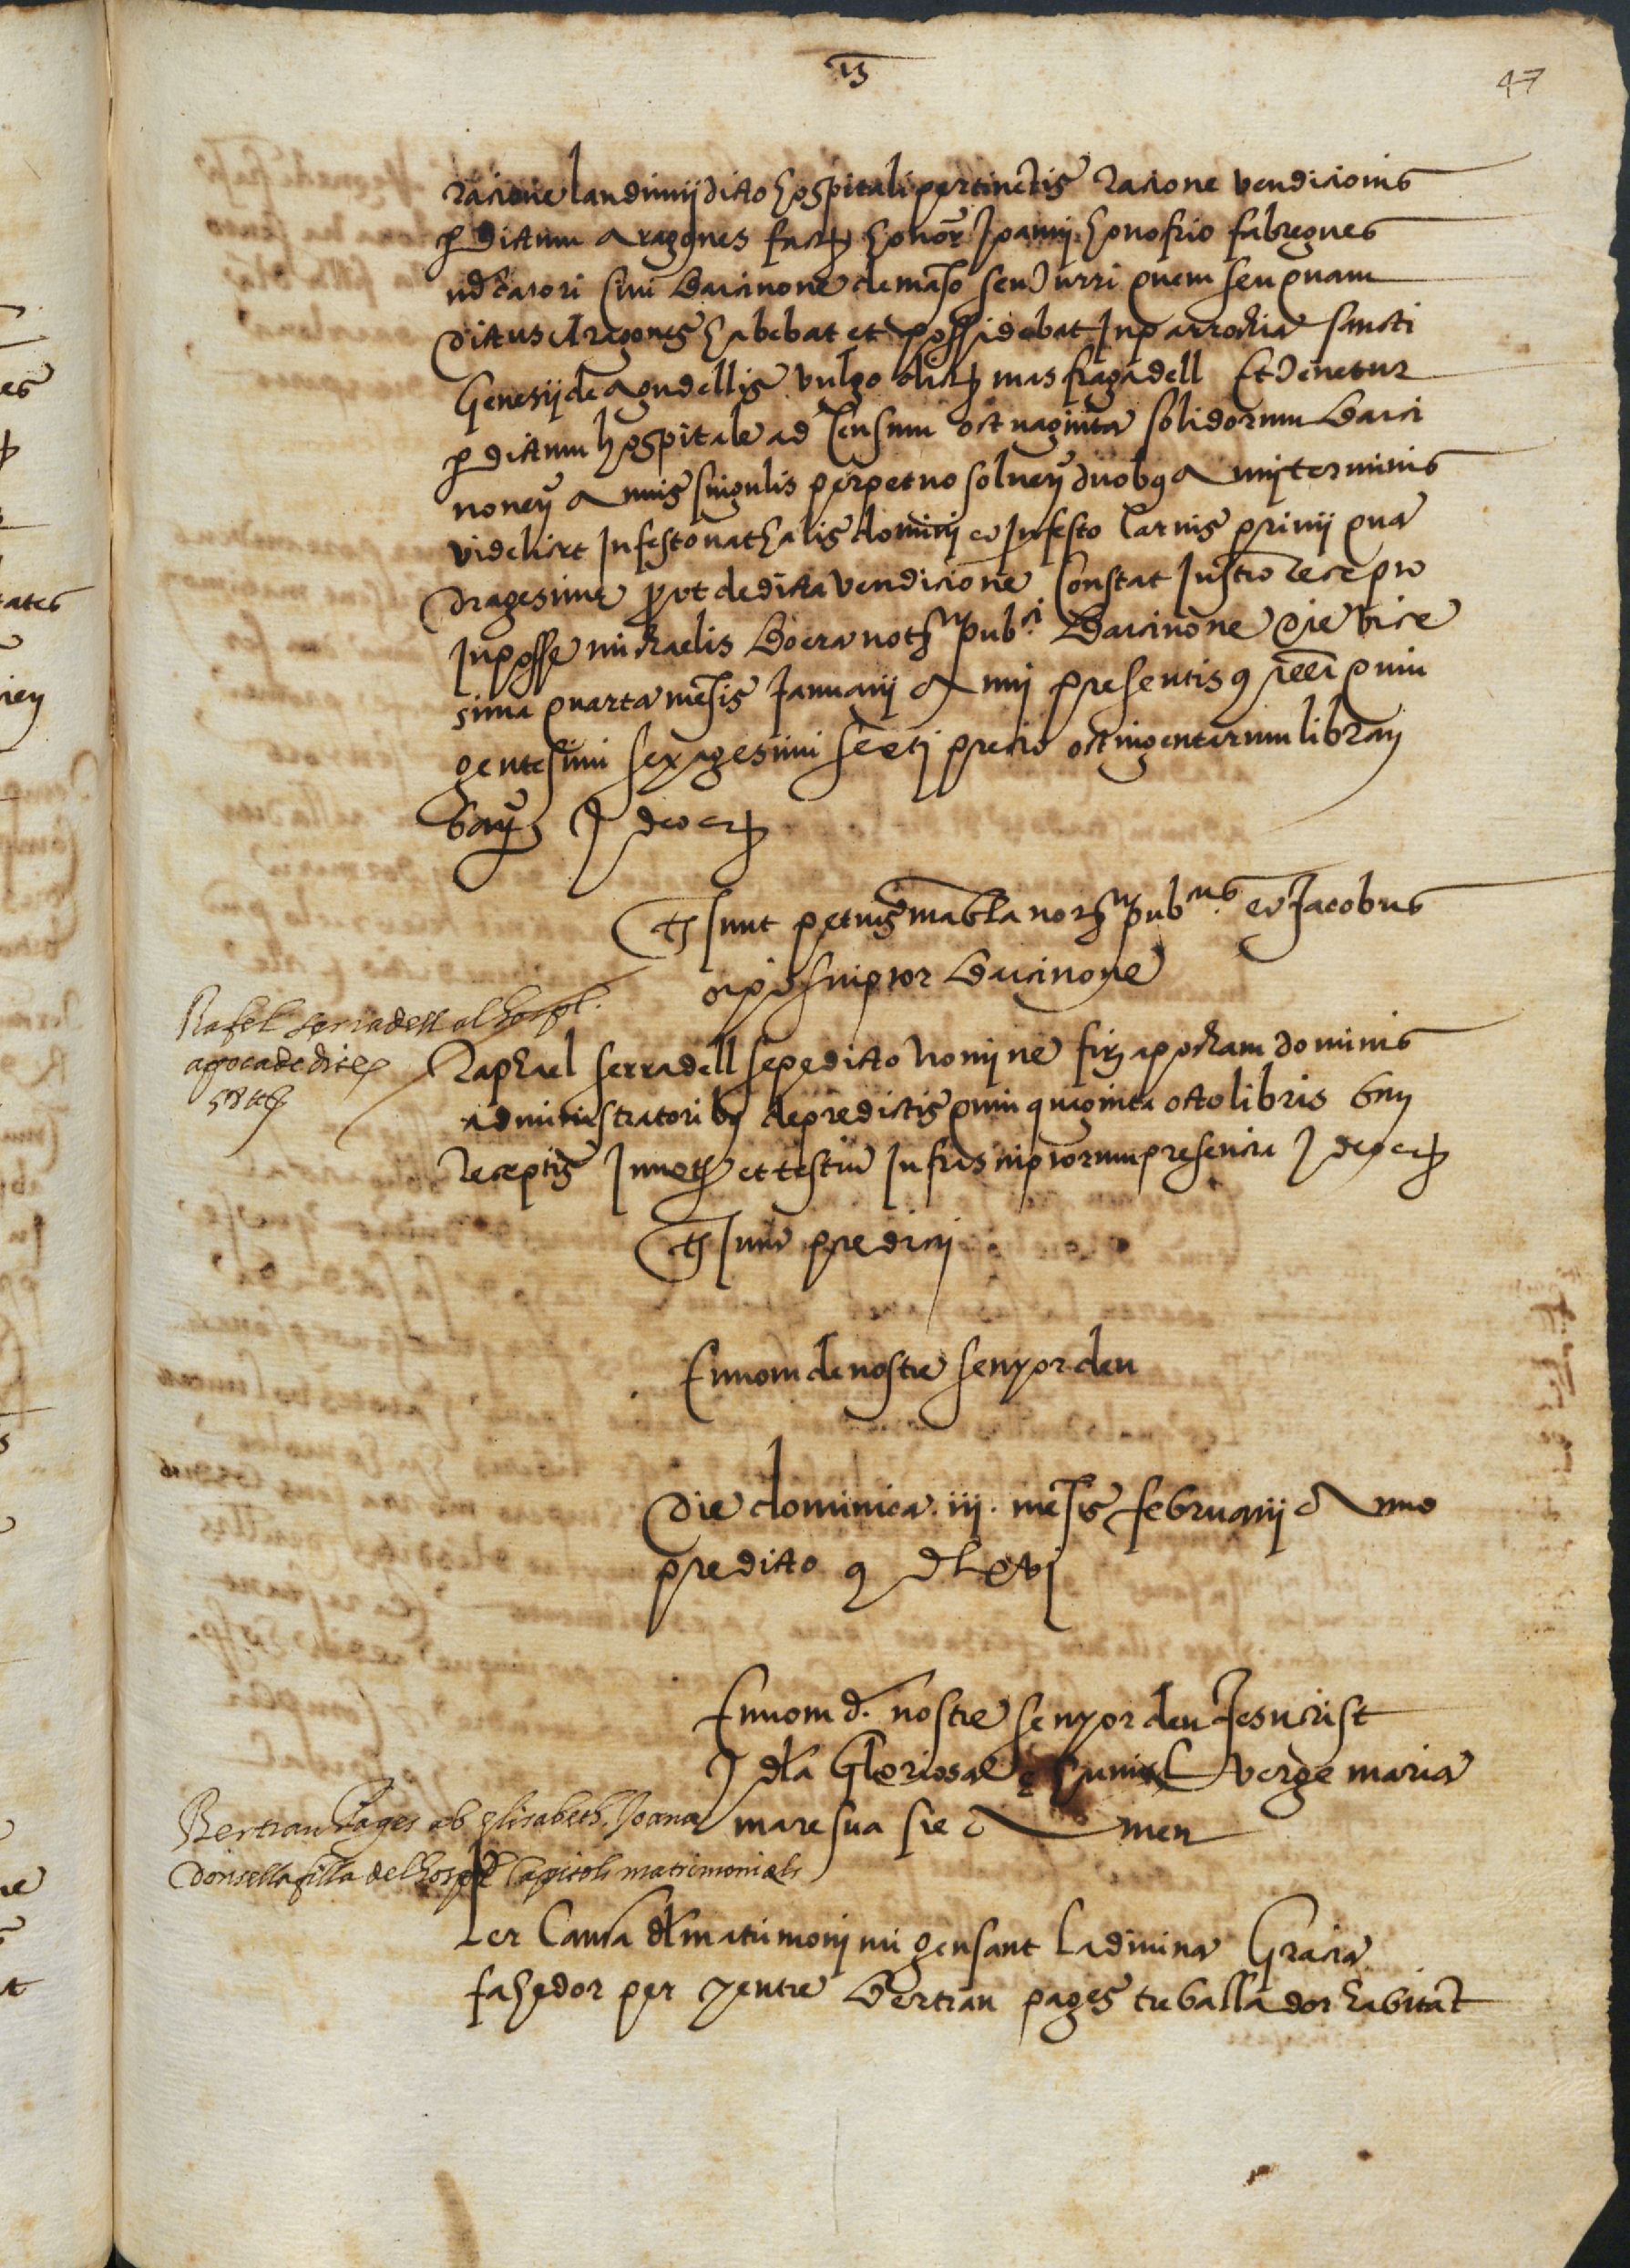 47
racione laudimii dicto hospitali pertinentis racione vendicionis
p dictum Aragones fact honor Joanni honofrio fabregues
mercatori civi Barcinone de manso seu Turri quem seu quam
dictus Aragones habebat et possidebat In parrochia sancti
Genesii de Agudellis vulgo dict mas fragadell Et tenetur
p dictum hospitale ad Censum octuaginta solidorum Barci
noney Annis singulis perpetuo solvey duobus Anni terminis
videlicet In festo nathalis domini et In festo Carnis privii qua
dragesime prout de dicta vendicione Constat Instro recepto
In posse michaelis Boera noty pubci Barcinone die vice
sima quarta mensis Januarii Anni presentis q millesimi quin
gentesimi sexagesimi sexti precio octingentarum libray
bay I deo etc
Ts sunt petrus mablla noty pubcus et Jacobus
scriptor Barcinone
Rafel serradell al hospl.
apoca de dites
58 ll
Raphael serradell sepedicto nomine firm apocham dominis
administratoribus de predictis quinquaginta octo libris bay
receptis In noty et testiu Infrascriptorum presencia I deo etc
Ts sunt predicti
En nom de nostre senyor deu
Die dominica .iii. mensis februarii Anno
predicto q dLxvj
En nom d. nostre senyor deu Jesucrist
I dla Gloriosa e humil verge maria
mare sua sie Amen
Bertran Pages ab Elisabeth Joana
donsella filla del hospl Capitols matrimonials
Per Causa del matrimoni mitgensant la divina Gracia
fahedor per y entre Bertran pages treballador habitant